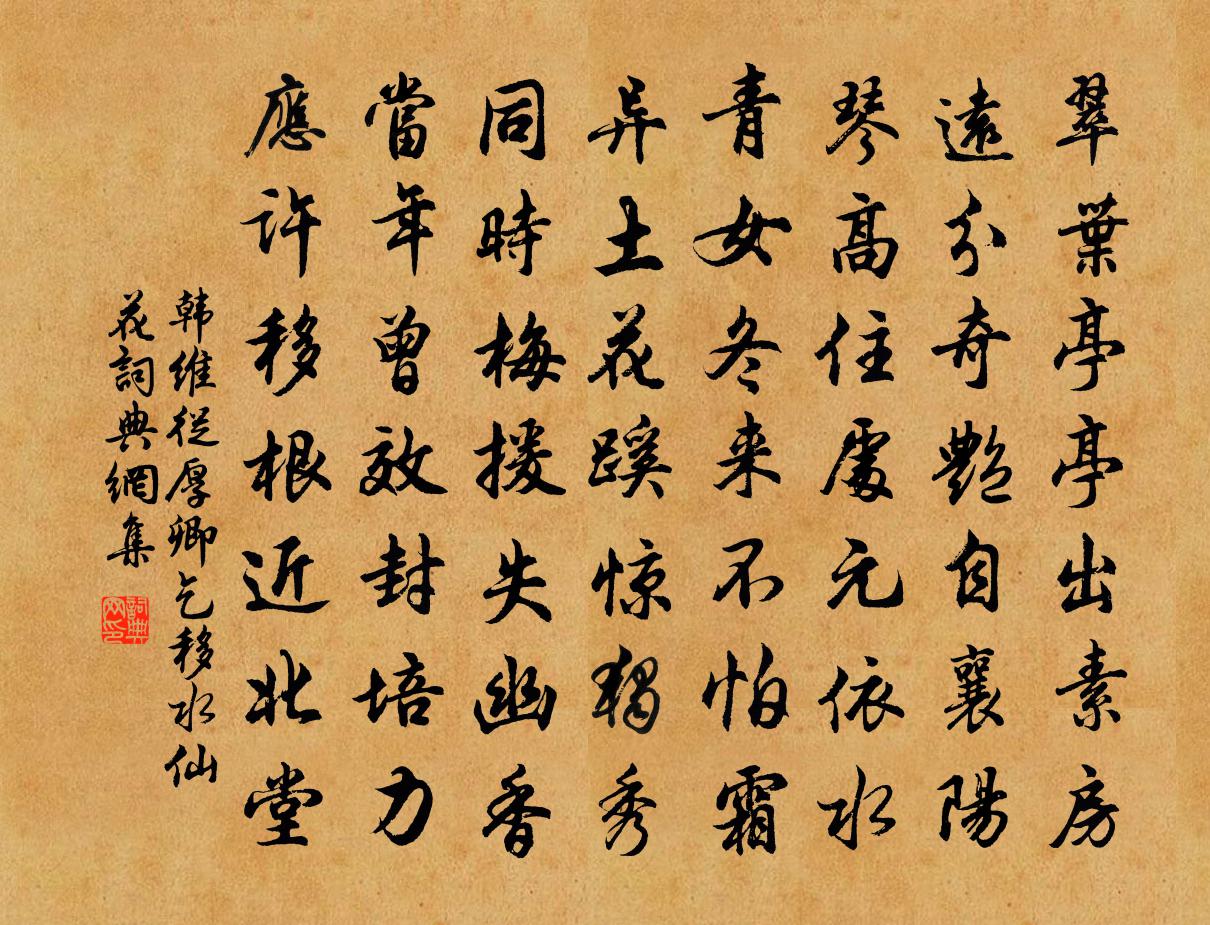 翠葉亭亭出素房
遠分奇艷自襄陽
琴高住處元依水
青女冬来不怕霜
异土花蹊惊獨秀
同時梅援失幽香
當年曾效封培力
應許移根近北堂
韩维從厚卿乞移水仙
花詞典網集
詞典网印